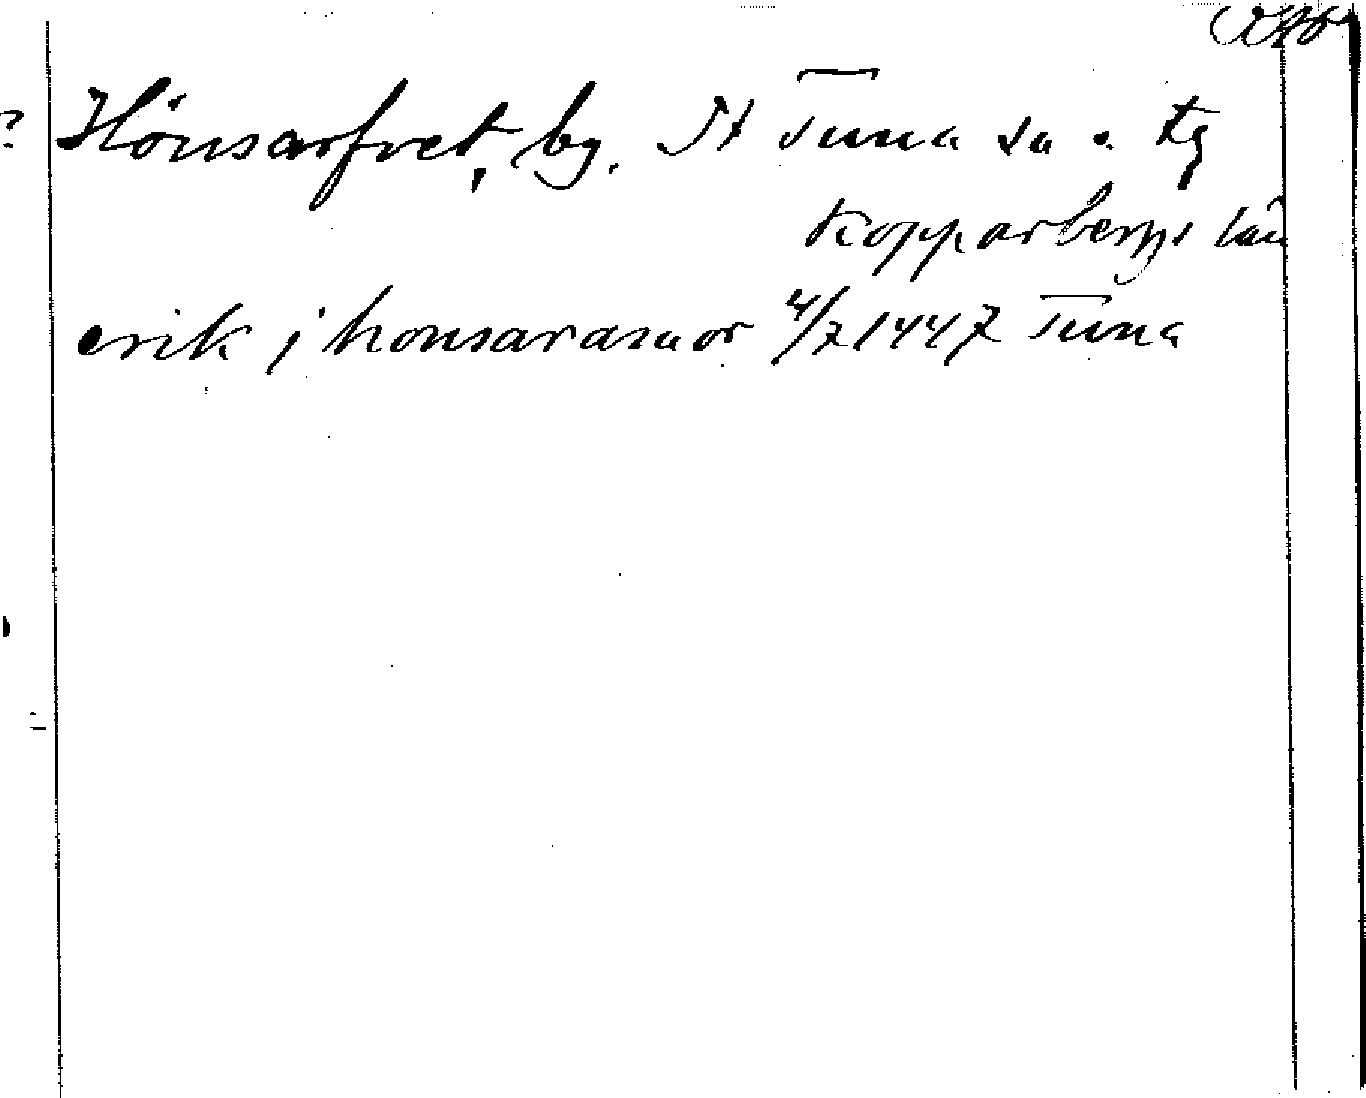 ? Hönsarfvet, by. St Tuna sn o. tg
Kopparbergs län
erik j honsarasuor 4/7 1447 Tuna